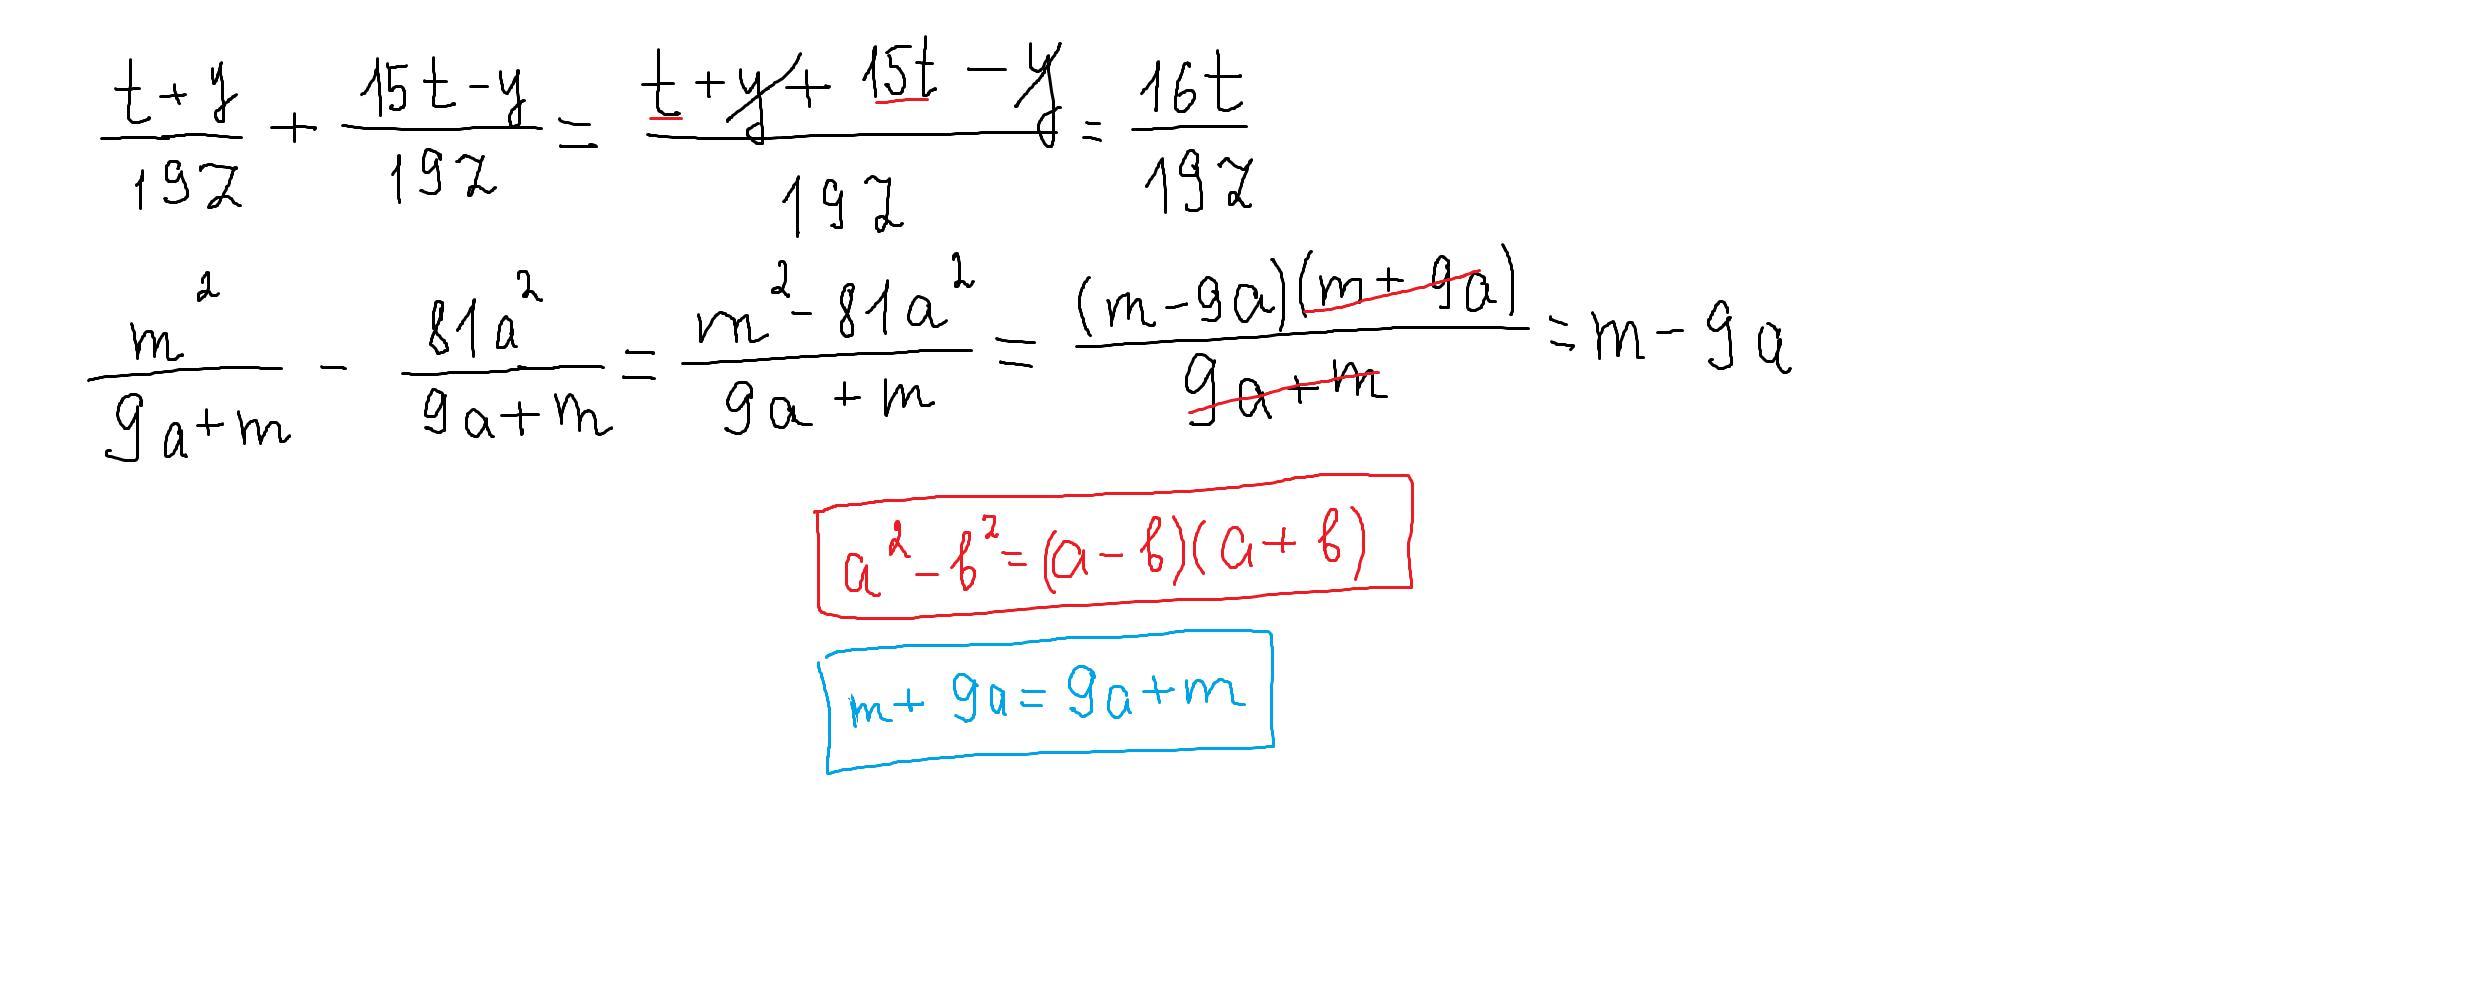 (t+y)/(19z) + (15t-y)/(19z) = (t+y+15t-y)/(19z) = (16t)/(19z)
m²/(9a+m) - 81a²/(9a+m) = (m²-81a²)/(9a+m) = ((m-9a)(m+9a))/(9a+m) = m-9a
a²-b²=(a-b)(a+b)
m+9a=9a+m